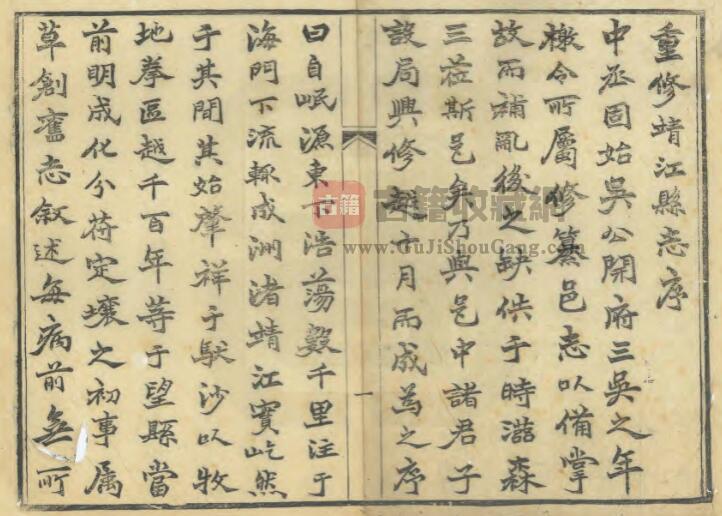 重修靖江縣志序
中丞固始吳公開府三吳之年
檄令所屬修纂邑志以備掌
故而補亂後之缺佚于時滋森
三莅斯邑矣乃與邑中諸君子
設局興修越月而成為之序
一
曰自岷源東下浩蕩數千里注于
海門下流輒成洲渚靖江實屹然
于其間其始肇祥于馱沙以牧
地拳區越千百年等于望縣當
前明成化分符定壤之初事属
草創舊志叙述每病前無所
古籍
古籍收藏網
www.GuJiShouCang.com